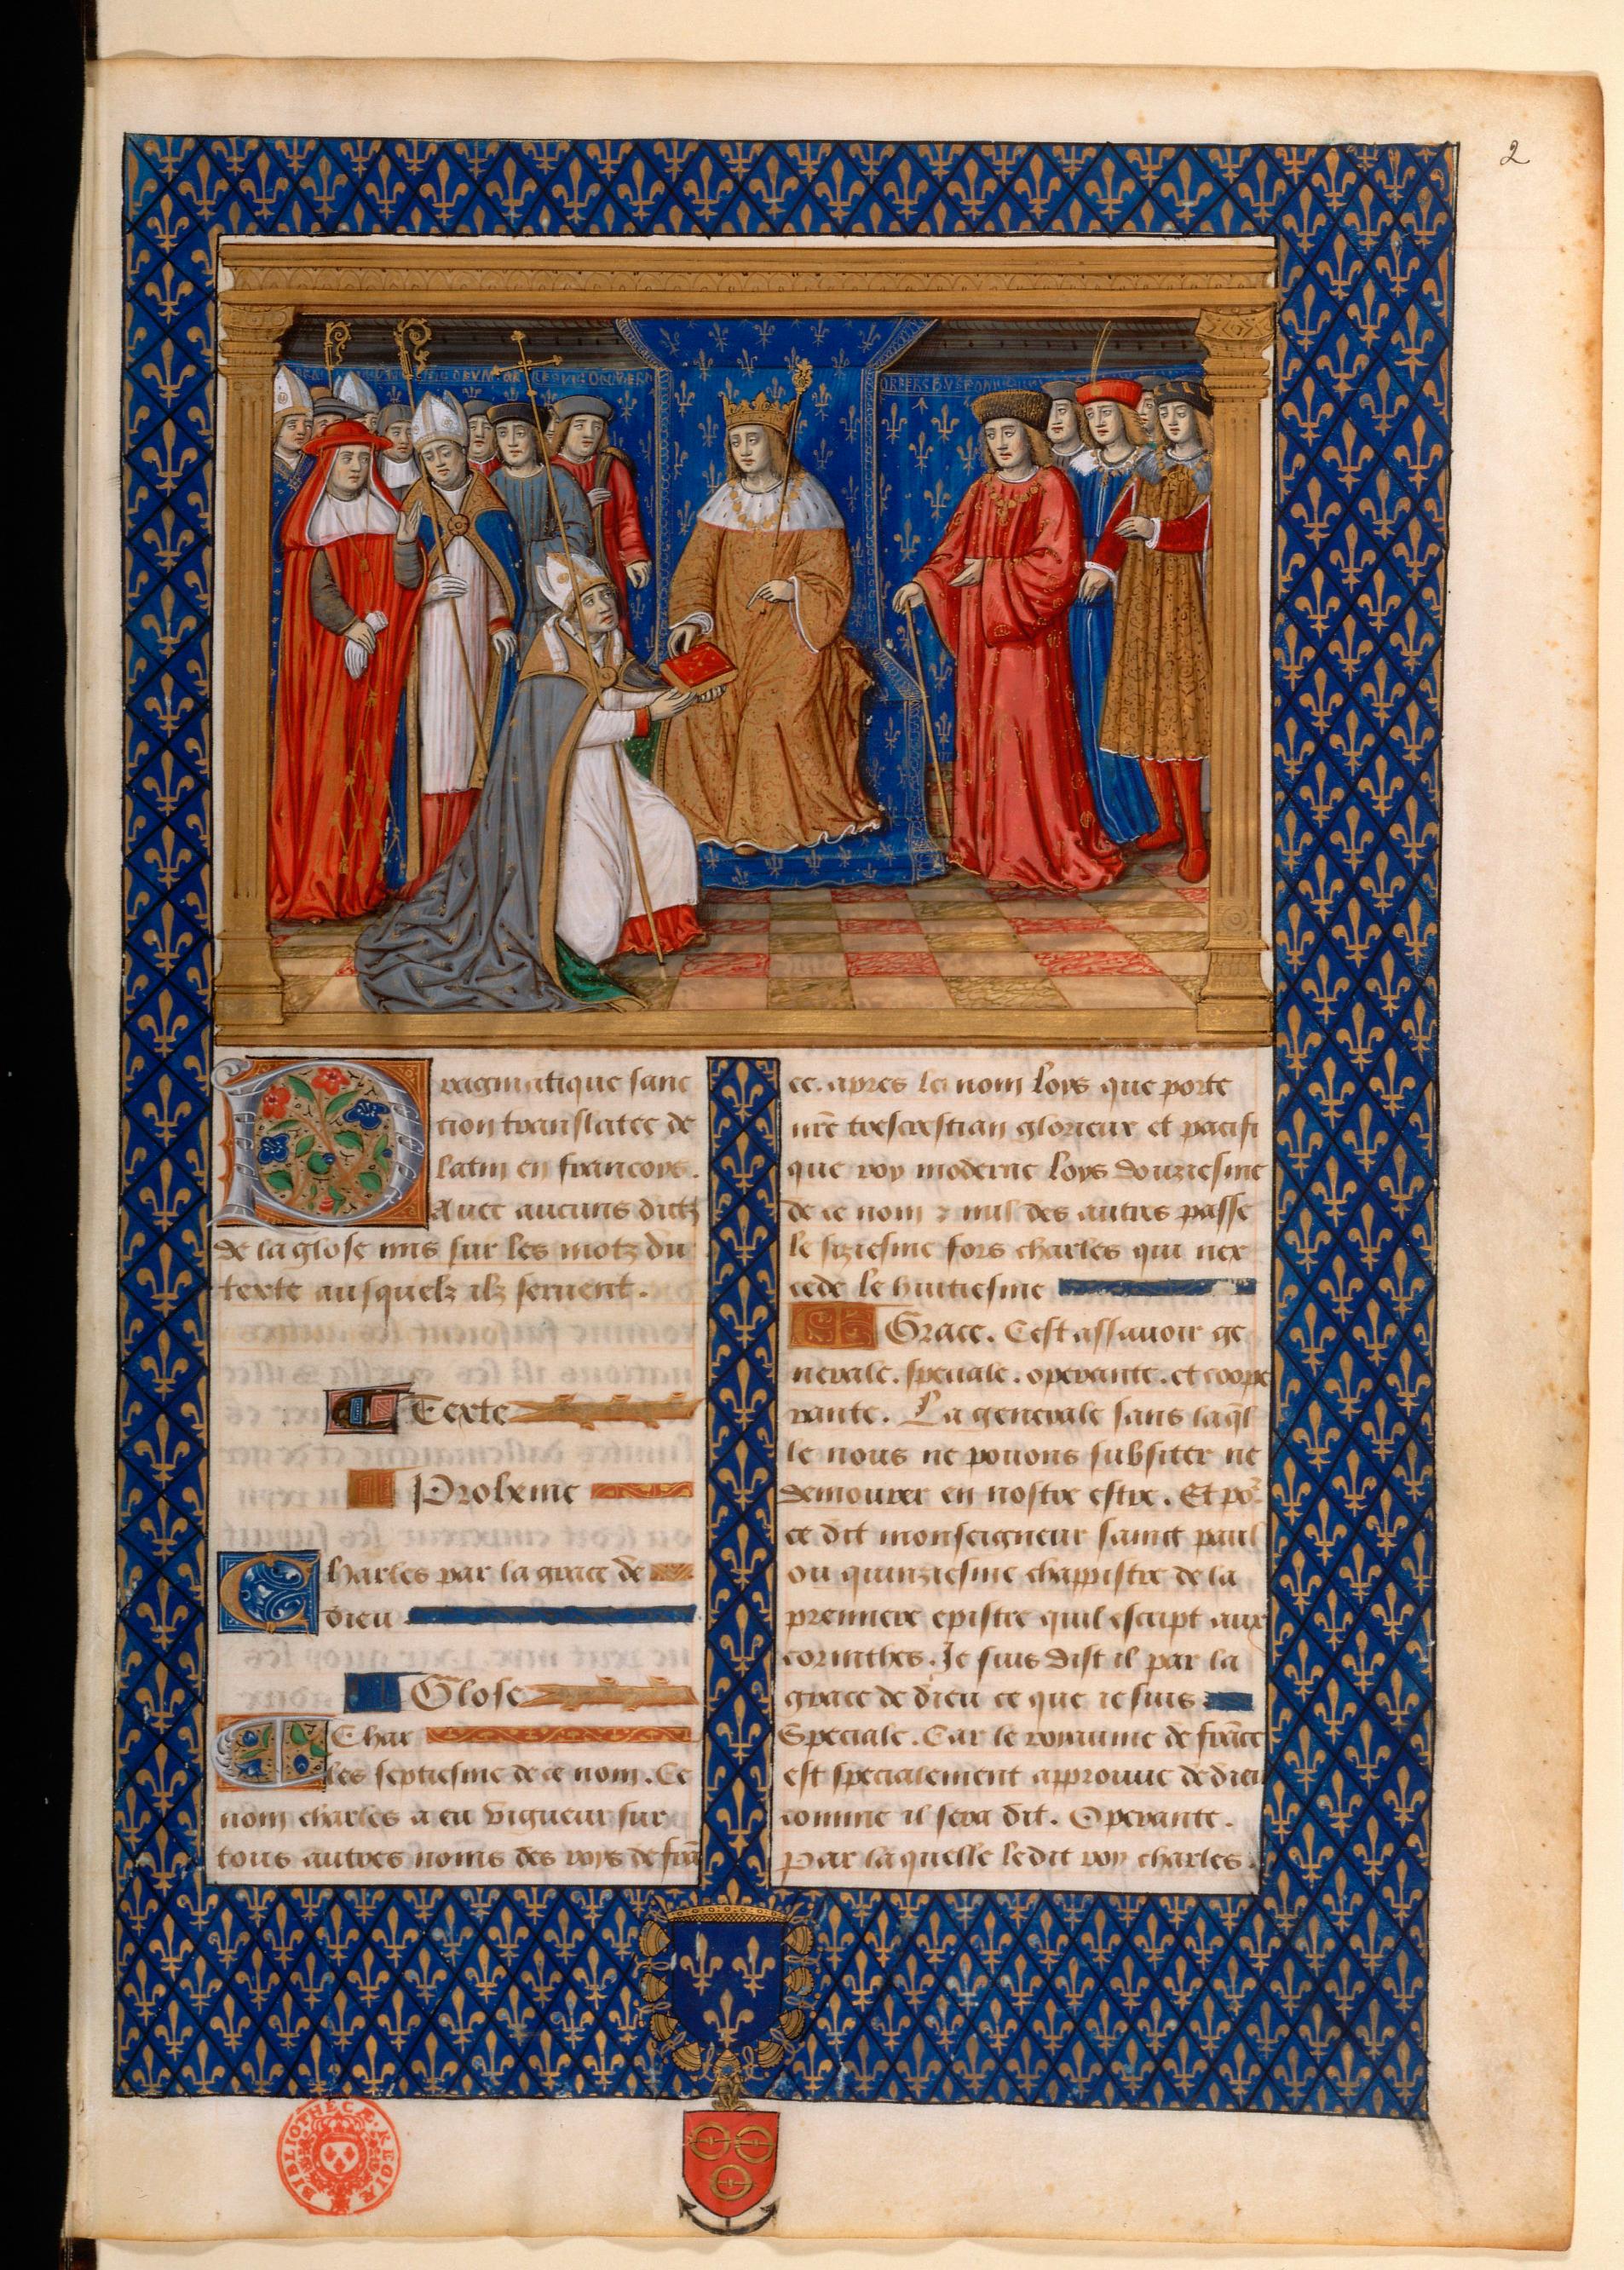 2
Pragmatique sanc
tion translatee de
latin en francoys.
Auec aucuns dictz
de la glose mis sur les motz du
texte ausquelz ilz seruent.
Texte
Proheme
Charles par la grace de
dieu
Glose
Char
les septiesme de ce nom. Ce
nom charles a eu vigueur sur
tous autres noms des roys de frã
ce. apres le nom loys que porte
nr̃e trescrestian glorieux et pacifi
que roy moderne loys douziesme
de ce nom & nul des autres passe
le siziesme fors charles qui nex
cede le huitiesme
Grace. Cest assauoir ge
nerale. speciale. operante. et coope
rante. La generale sans laq̃l
le nous ne pouons subsiter ne
demourer en nostre estre. Et po
ce dit monseigneur sainct paul
ou quinziesme chappistre de la
premiere epistre quil escript aux
corinthes. Je suis dist il par la
grace de dieu ce que ie suis
Speciale. Car le royaume de frãce
est specialement approuue de dieu
comme il sera dit. Operante.
Par laquelle ledit roy charles.
BIBLIOTHECÆ REGIÆ